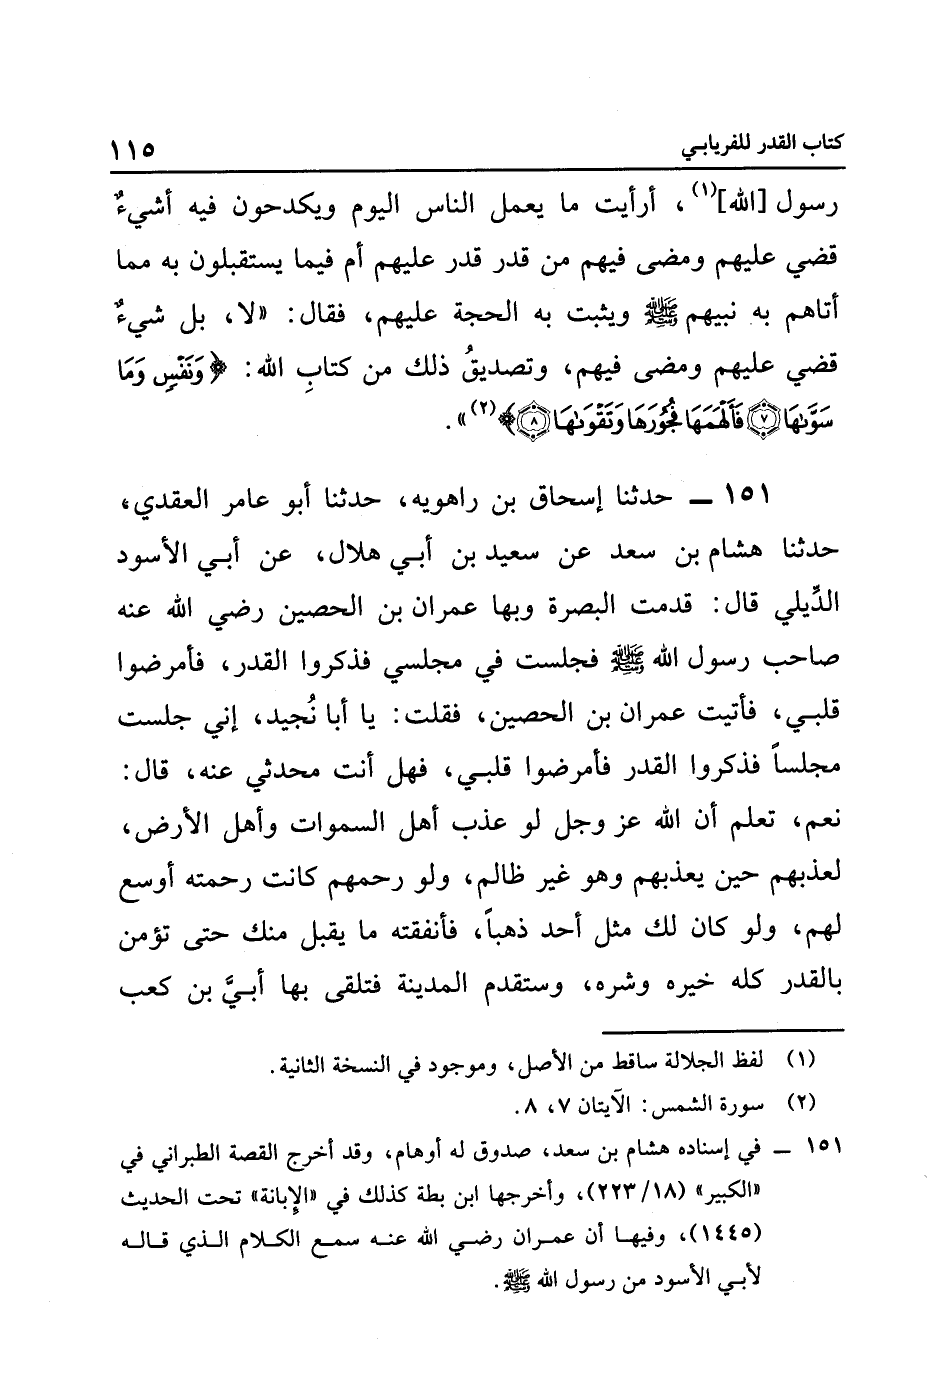 كتاب القدر للفريابي
١١٥
رسول [الله](١)، أرأيت ما يعمل الناس اليوم ويكدحون فيه أشيءٌ
قضي عليهم ومضى فيهم من قدر قدر عليهم أم فيما يستقبلون به مما
أتاهم به نبيهم ﷺ ويثبت به الحجة عليهم، فقال: «لا، بل شيءٌ
قضي عليهم ومضى فيهم، وتصديقُ ذلك من كتابِ الله: ﴿وَنَفْسٍ وَمَا
سَوَّىٰهَا ٧ فَأَلْهَمَهَا فُجُورَهَا وَتَقْوَىٰهَا ٨﴾(٢)».
١٥١ ــ حدثنا إسحاق بن راهويه، حدثنا أبو عامر العقدي،
حدثنا هشام بن سعد عن سعيد بن أبي هلال، عن أبي الأسود
الدِّيلي قال: قدمت البصرة وبها عمران بن الحصين رضي الله عنه
صاحب رسول الله ﷺ فجلست في مجلسي فذكروا القدر، فأمرضوا
قلبي، فأتيت عمران بن الحصين، فقلت: يا أبا نُجيد، إني جلست
مجلساً فذكروا القدر فأمرضوا قلبي، فهل أنت محدثي عنه، قال:
نعم، تعلم أن الله عز وجل لو عذب أهل السموات وأهل الأرض،
لعذبهم حين يعذبهم وهو غير ظالم، ولو رحمهم كانت رحمته أوسع
لهم، ولو كان لك مثل أحد ذهباً، فأنفقته ما يقبل منك حتى تؤمن
بالقدر كله خيره وشره، وستقدم المدينة فتلقى بها أبيَّ بن كعب
(١) لفظ الجلالة ساقط من الأصل، وموجود في النسخة الثانية.
(٢) سورة الشمس: الآيتان ٧، ٨.
١٥١ ــ في إسناده هشام بن سعد، صدوق له أوهام، وقد أخرج القصة الطبراني في
«الكبير» (٢٢٣/١٨)، وأخرجها ابن بطة كذلك في «الإبانة» تحت الحديث
(١٤٤٥)، وفيها أن عمران رضي الله عنه سمع الكلام الذي قاله
لأبي الأسود من رسول الله ﷺ.